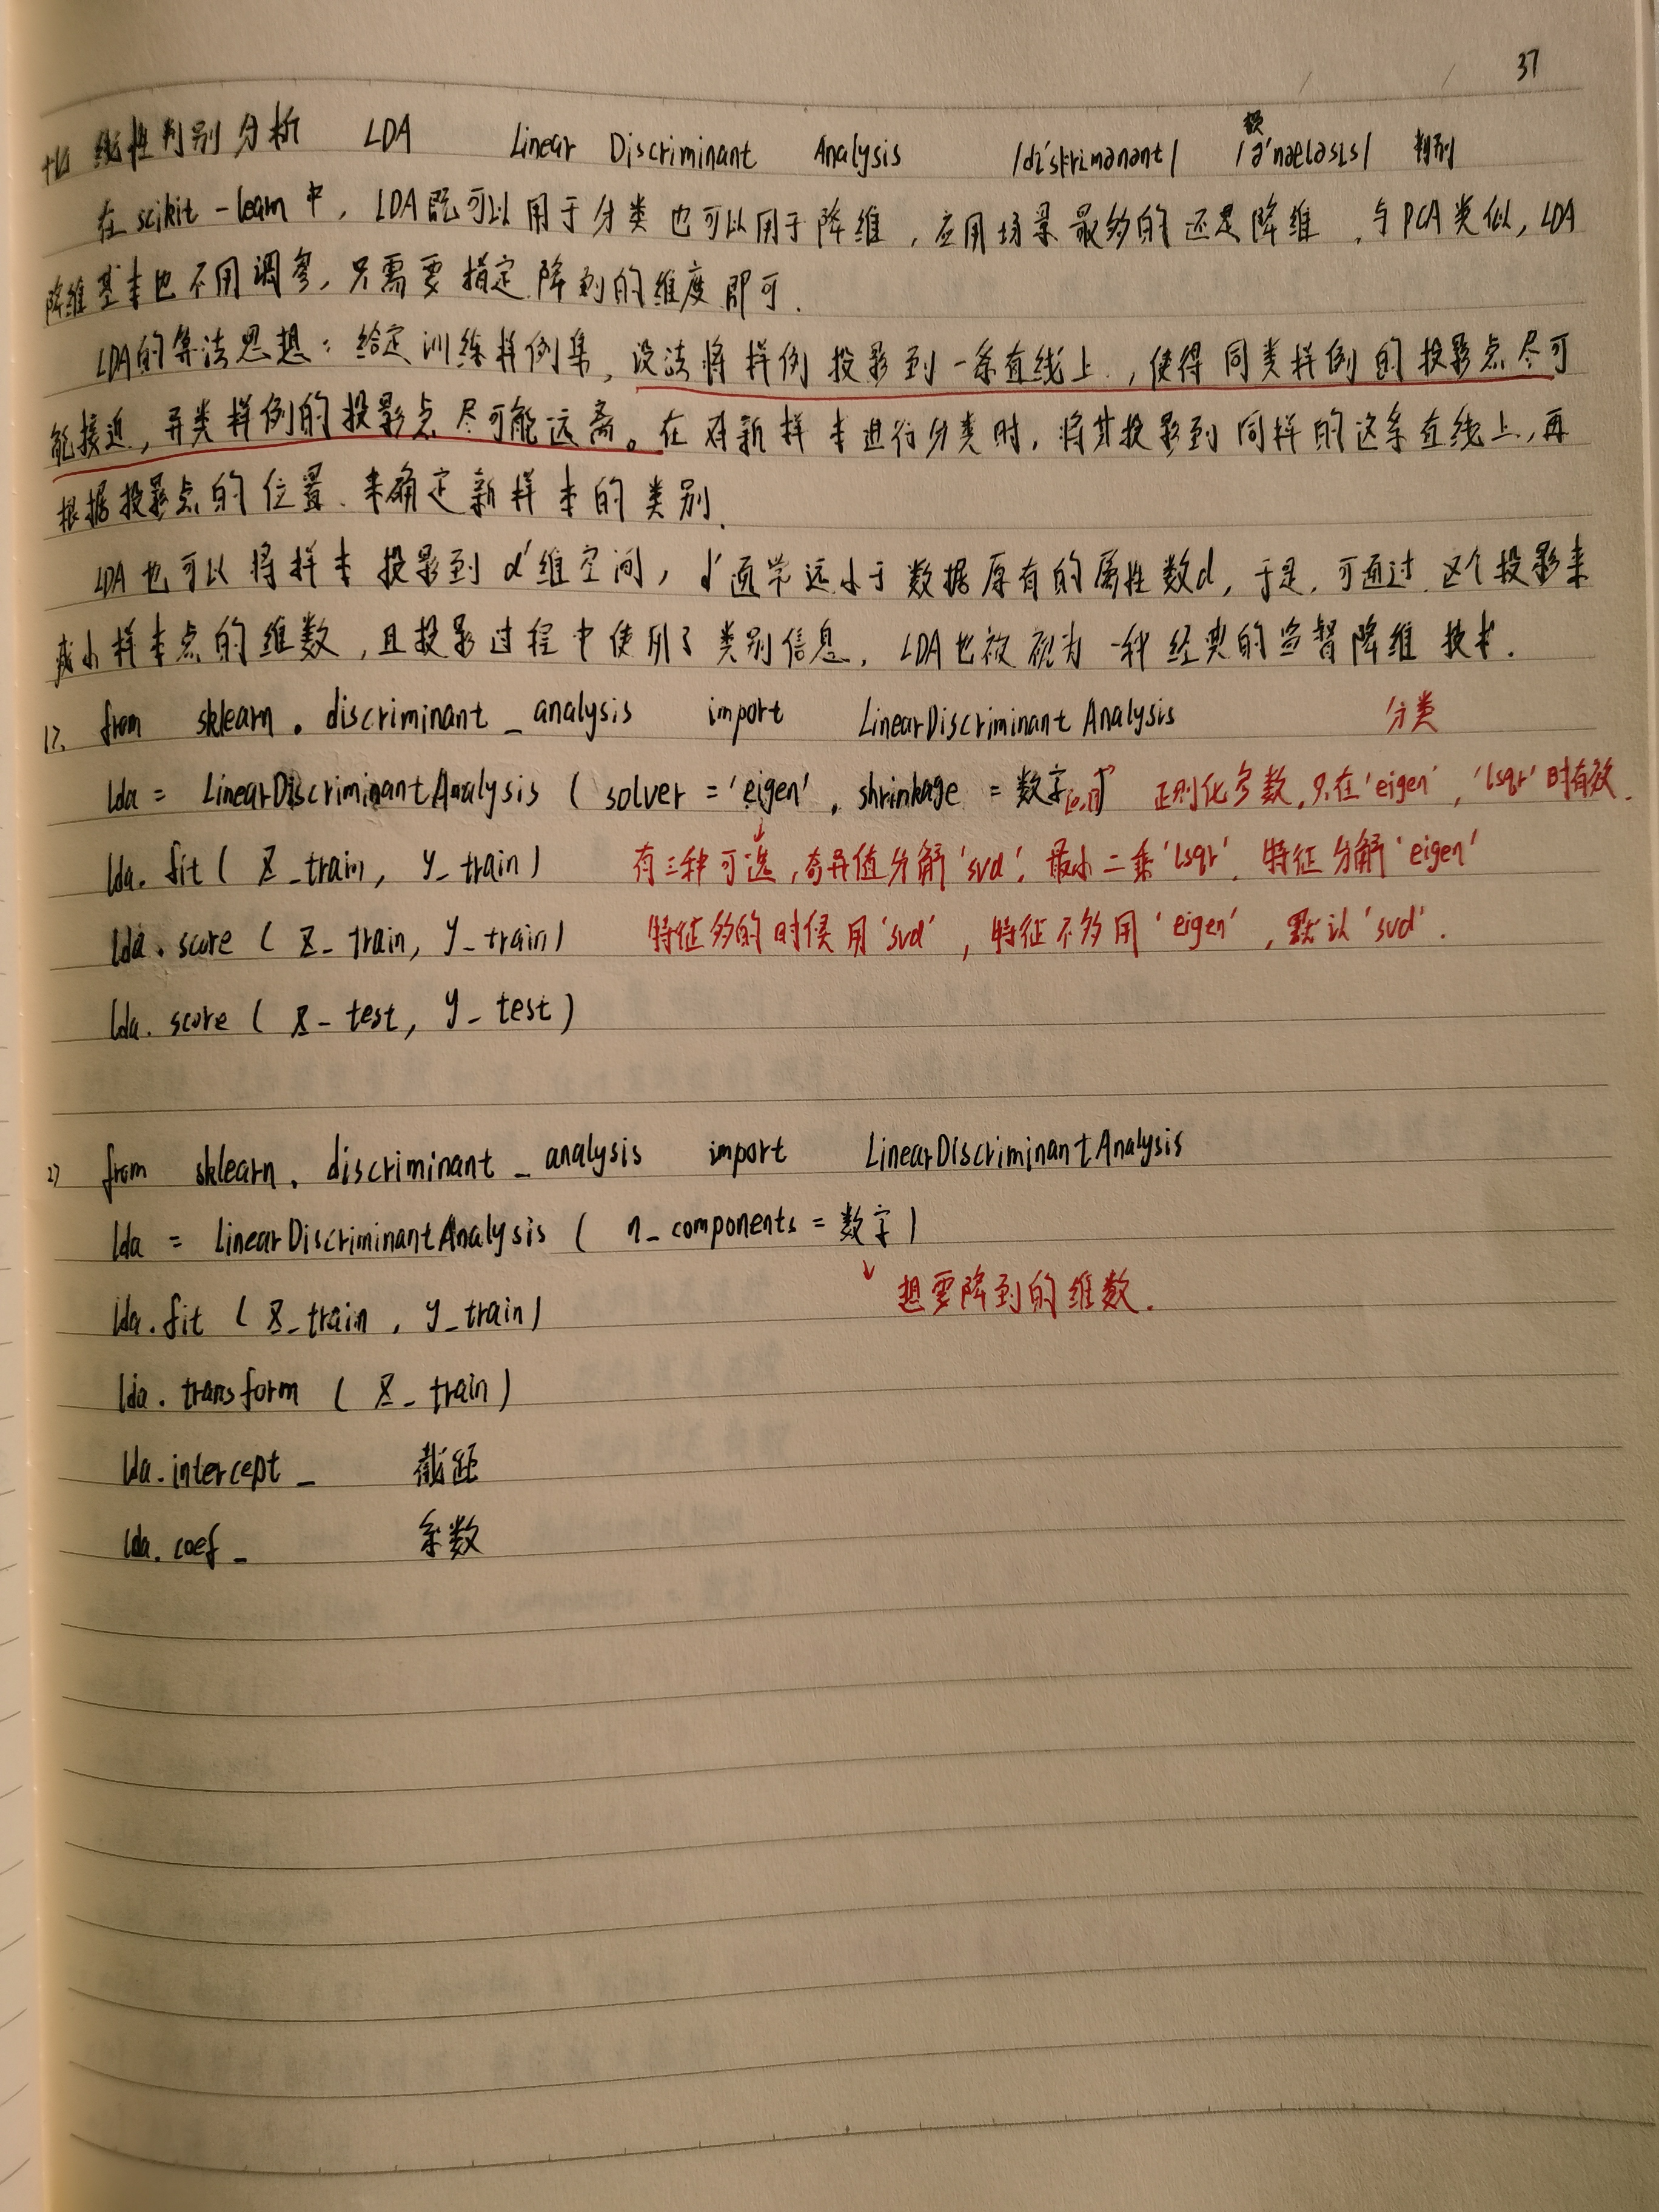 37
十四 线性判别分析 LDA Linear Discriminant Analysis /dɪ'skrɪmənənt/ /ə'næləsɪs/ 判别
在 scikit-learn 中, LDA既可以用于分类也可以用于降维, 应用场景最多的还是降维. 与PCA类似, LDA
降维基本也不用调参, 只需要指定降到的维度即可.
LDA的算法思想: 给定训练样例集, 设法将样例投影到一条直线上, 使得同类样例的投影点尽可
能接近, 异类样例的投影点尽可能远离。在对新样本进行分类时, 将其投影到同样的这条直线上, 再
根据投影点的位置、来确定新样本的类别.
LDA也可以将样本投影到d'维空间, d'通常远小于数据原有的属性数d, 于是, 可通过这个投影来
减小样本点的维数, 且投影过程中使用了类别信息, LDA也被视为一种经典的监督降维技术.
1>. from sklearn.discriminant_analysis import LinearDiscriminantAnalysis 分类
lda = LinearDiscriminantAnalysis ( solver = 'eigen', shrinkage = 数字[0,1]) 正则化参数, 只在'eigen', 'lsqr'时有效.
lda.fit( X_train, y_train) 有三种可选, 奇异值分解'svd', 最小二乘'lsqr', 特征分解'eigen'
lda.score ( X_train, y_train) 特征多的时候用'svd', 特征不多用'eigen', 默认'svd'.
lda.score ( X_test, y_test)
2> from sklearn.discriminant_analysis import LinearDiscriminantAnalysis
lda = LinearDiscriminantAnalysis ( n_components = 数字)
想要降到的维数.
lda.fit ( X_train, y_train)
lda.transform ( X_train)
lda.intercept_ 截距
lda.coef_ 系数